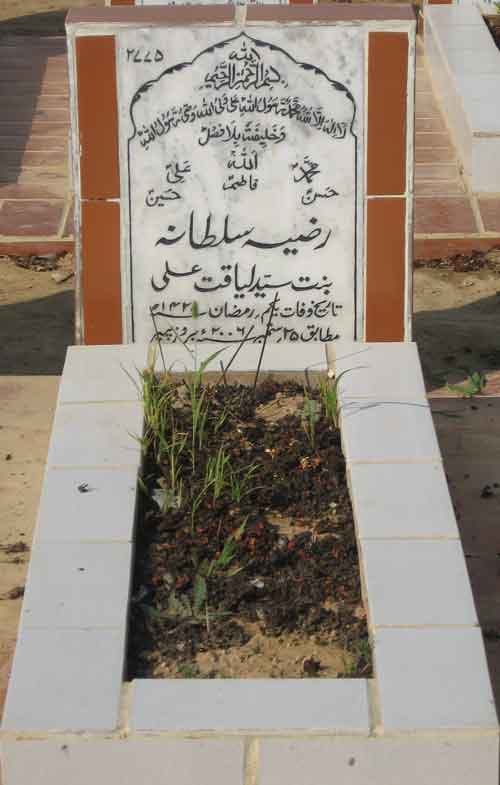 ۲۷۷۵
بسم اللہ الرحمن الرحیم
لا الہ الا اللہ محمد رسول اللہ علی ولی اللہ وصی رسول اللہ
وخلیفتہ بلا فصل
اللہ
محمد علی
فاطمہ
حسن حسین
رضیہ سلطانہ
بنت سید لیاقت علی
تاریخ وفات یکم رمضان ۱۴۲۷ھ
مطابق ۲۵ ستمبر ۲۰۰۶ء بروز پیر